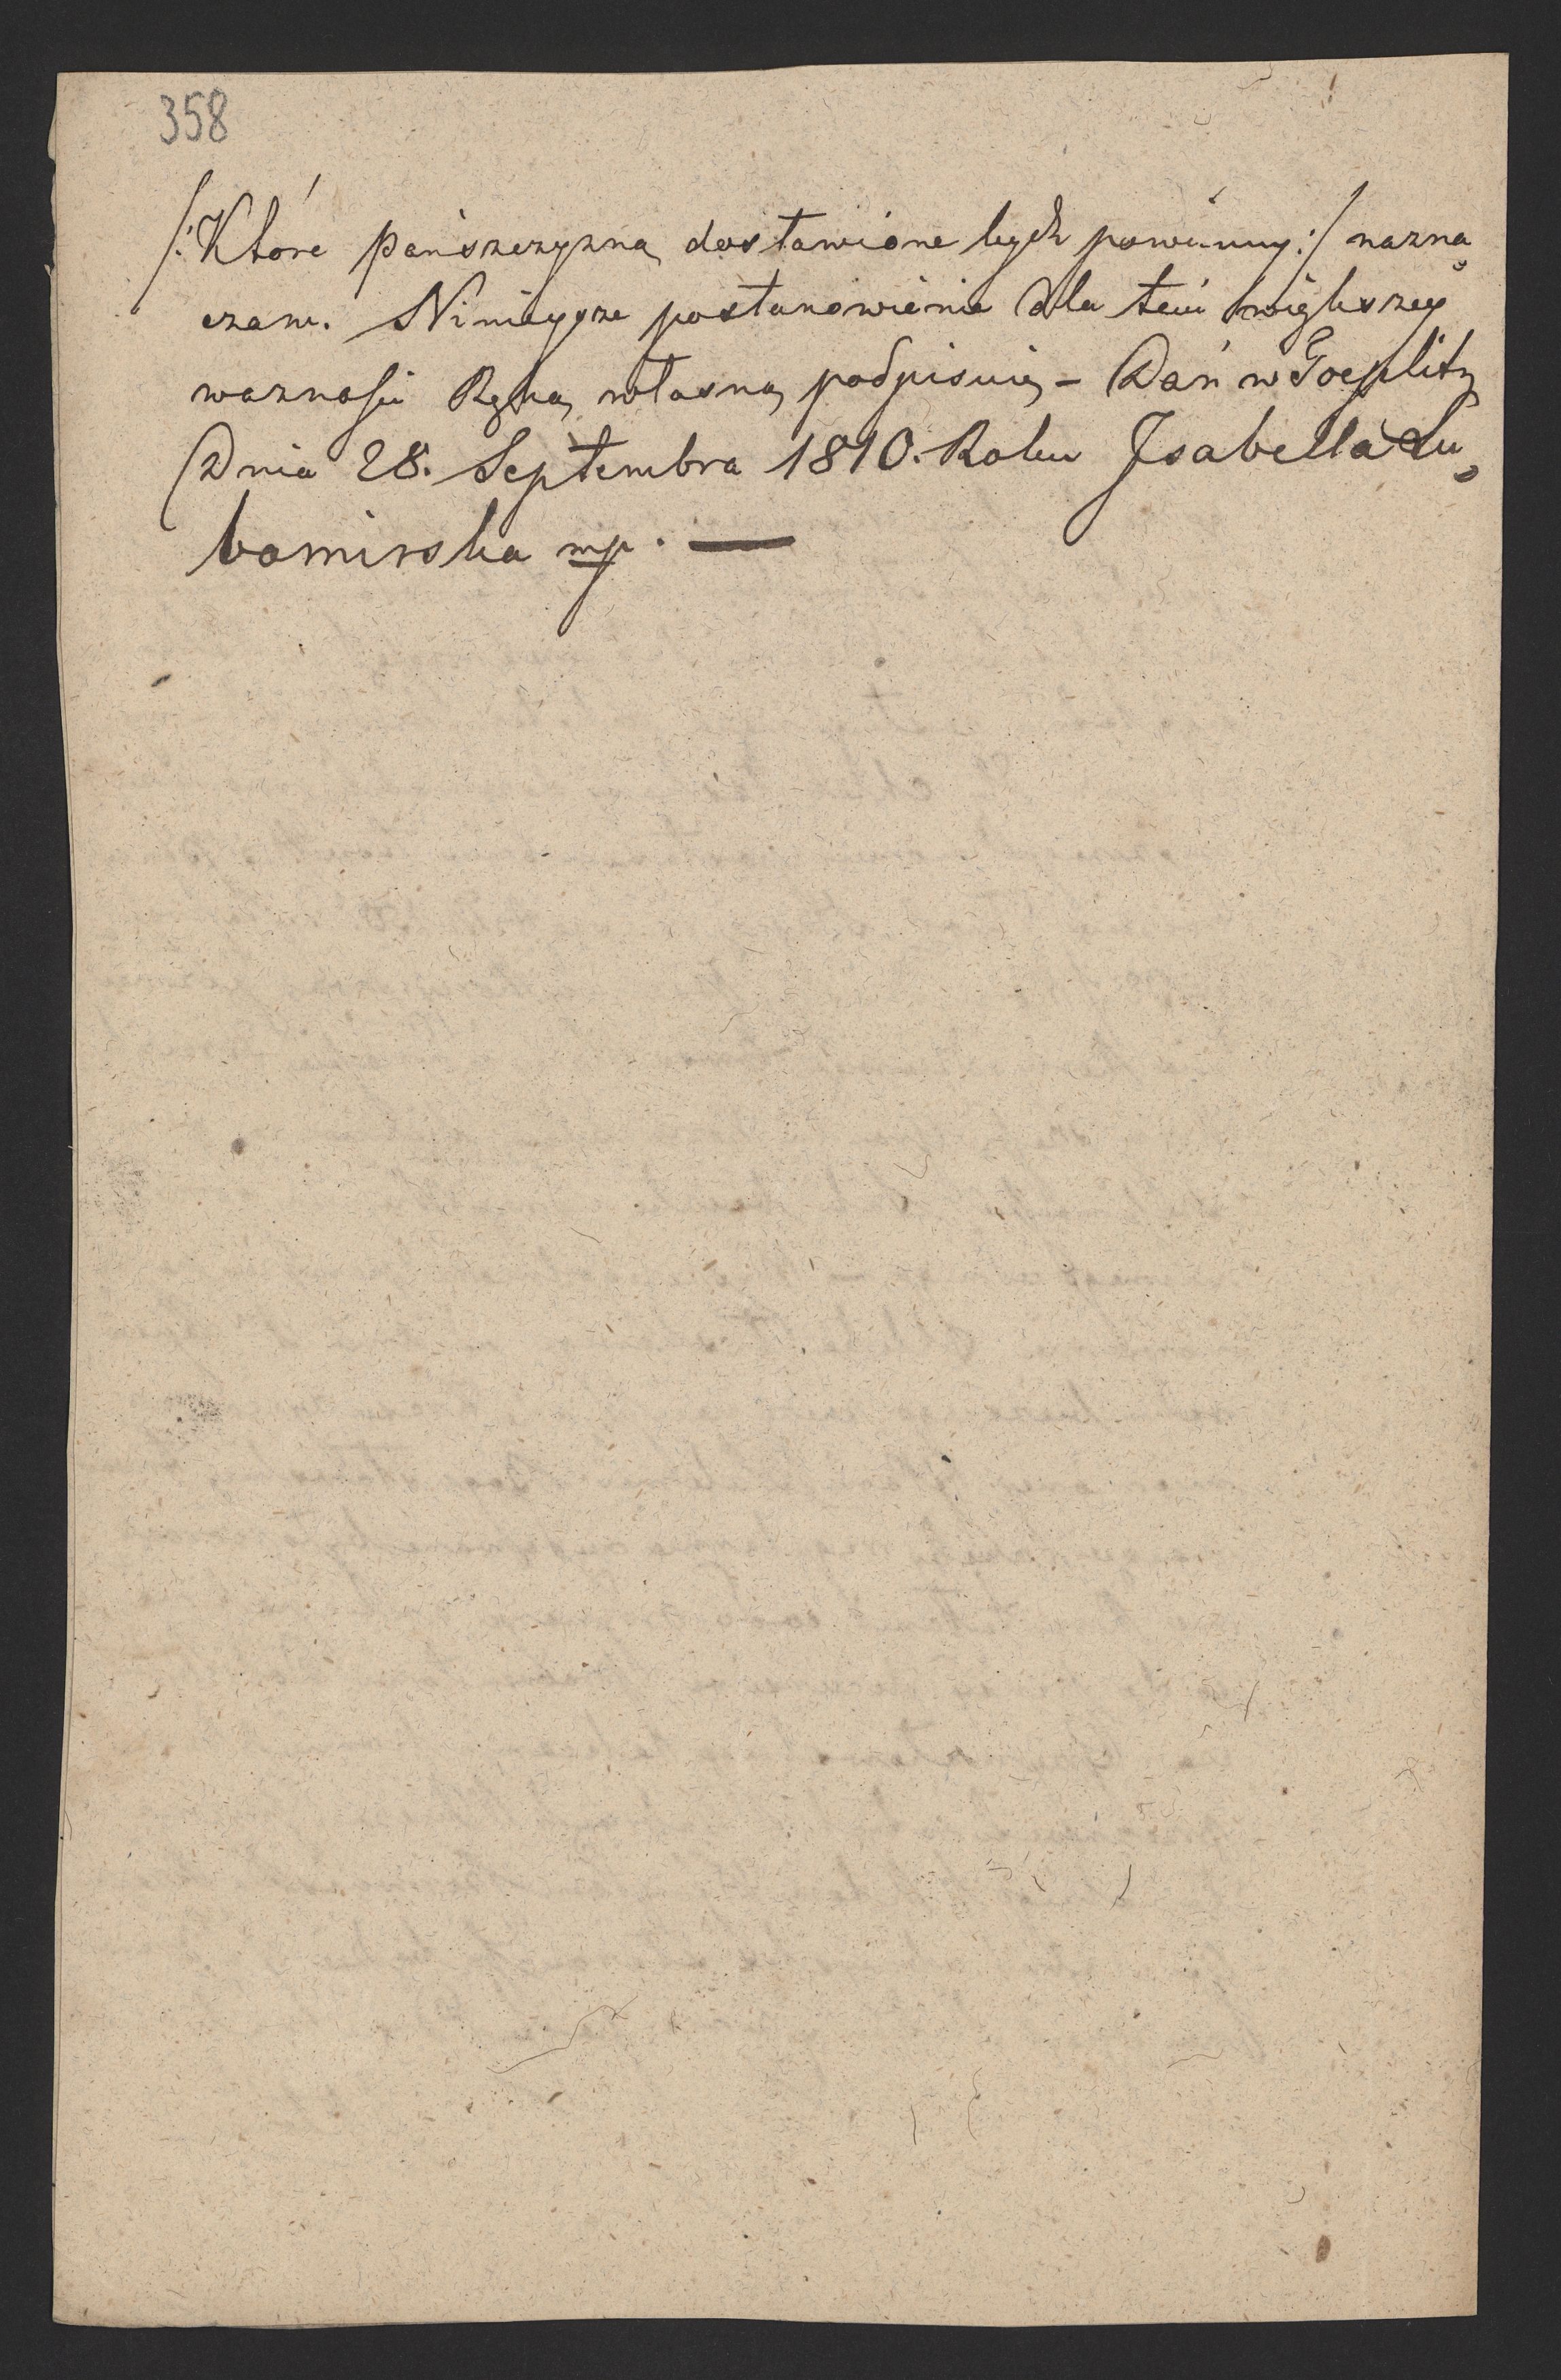 358
/: Które pańszczyzną dostawione bydź powinny :/ nazna„
czam. Ninieysze postanowienie dla tem większey
waznosci Ręką własną podpisuię – Dań w Toeplitz
Dnia 28. Septembra 1810. Roku Isabella Lu„
bomirska mp. —